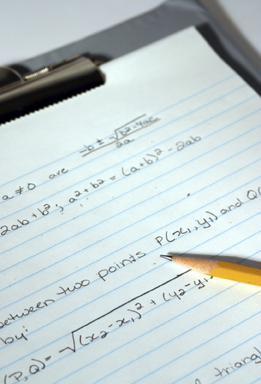 a ≠ 0 are -b ± √(b²-4ac) / 2a
2ab + b²; a² + b² = (a+b)² - 2ab
between two points P(x₁, y₁) and Q(
by:
(P,Q) = √(x₂-x₁)² + (y₂-y₁
triangl